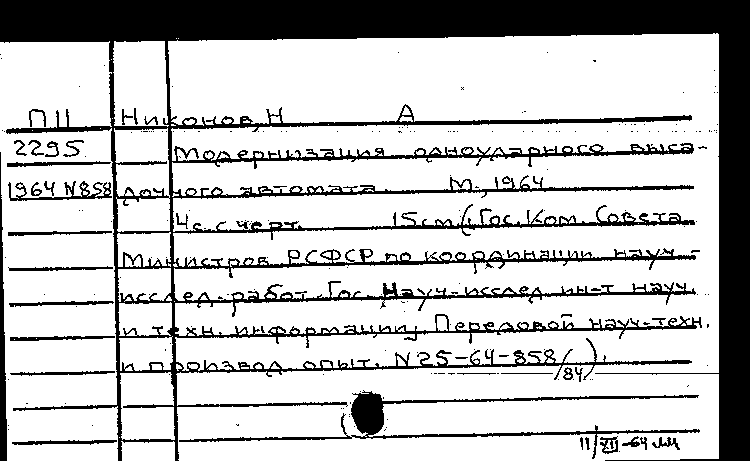 П11 Никонов, Н А
2295 Модернизация одноударного выса-
1964 N858 дочного автомата. М., 1964
4с. с черт. 15см (Гос. Ком. Совета
Министров РСФСР по координации науч.-
исслед. работ. Гос. Науч.-исслед. ин-т науч.
и техн. информации. Передовой науч.-техн.
и производ. опыт. N25-64-858/84).
11/XII-64